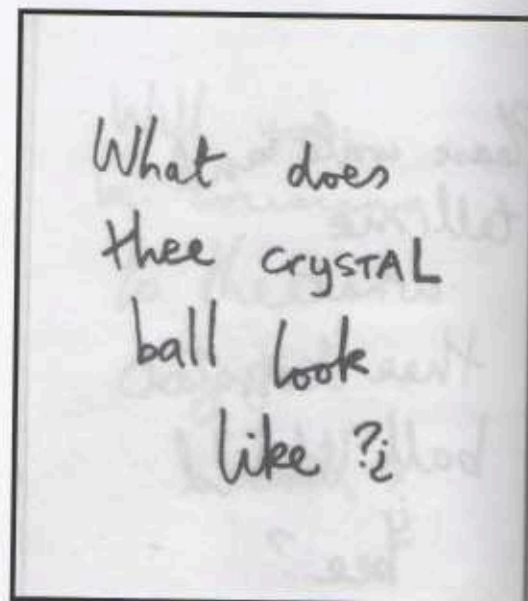 What does
thee crysTAL
ball look
like ?¿